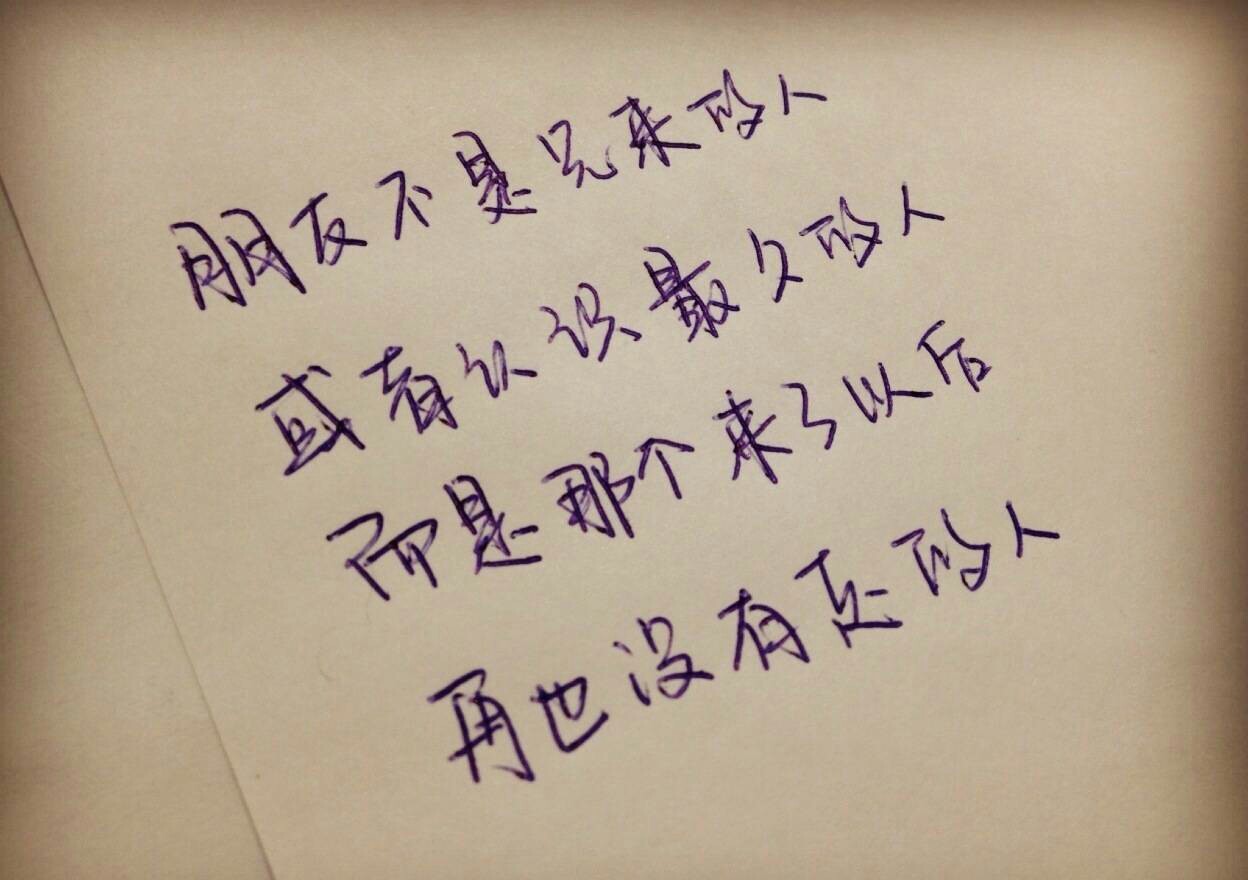 朋友不是先来的人
或者认识最久的人
而是那个来了以后
再也没有走的人